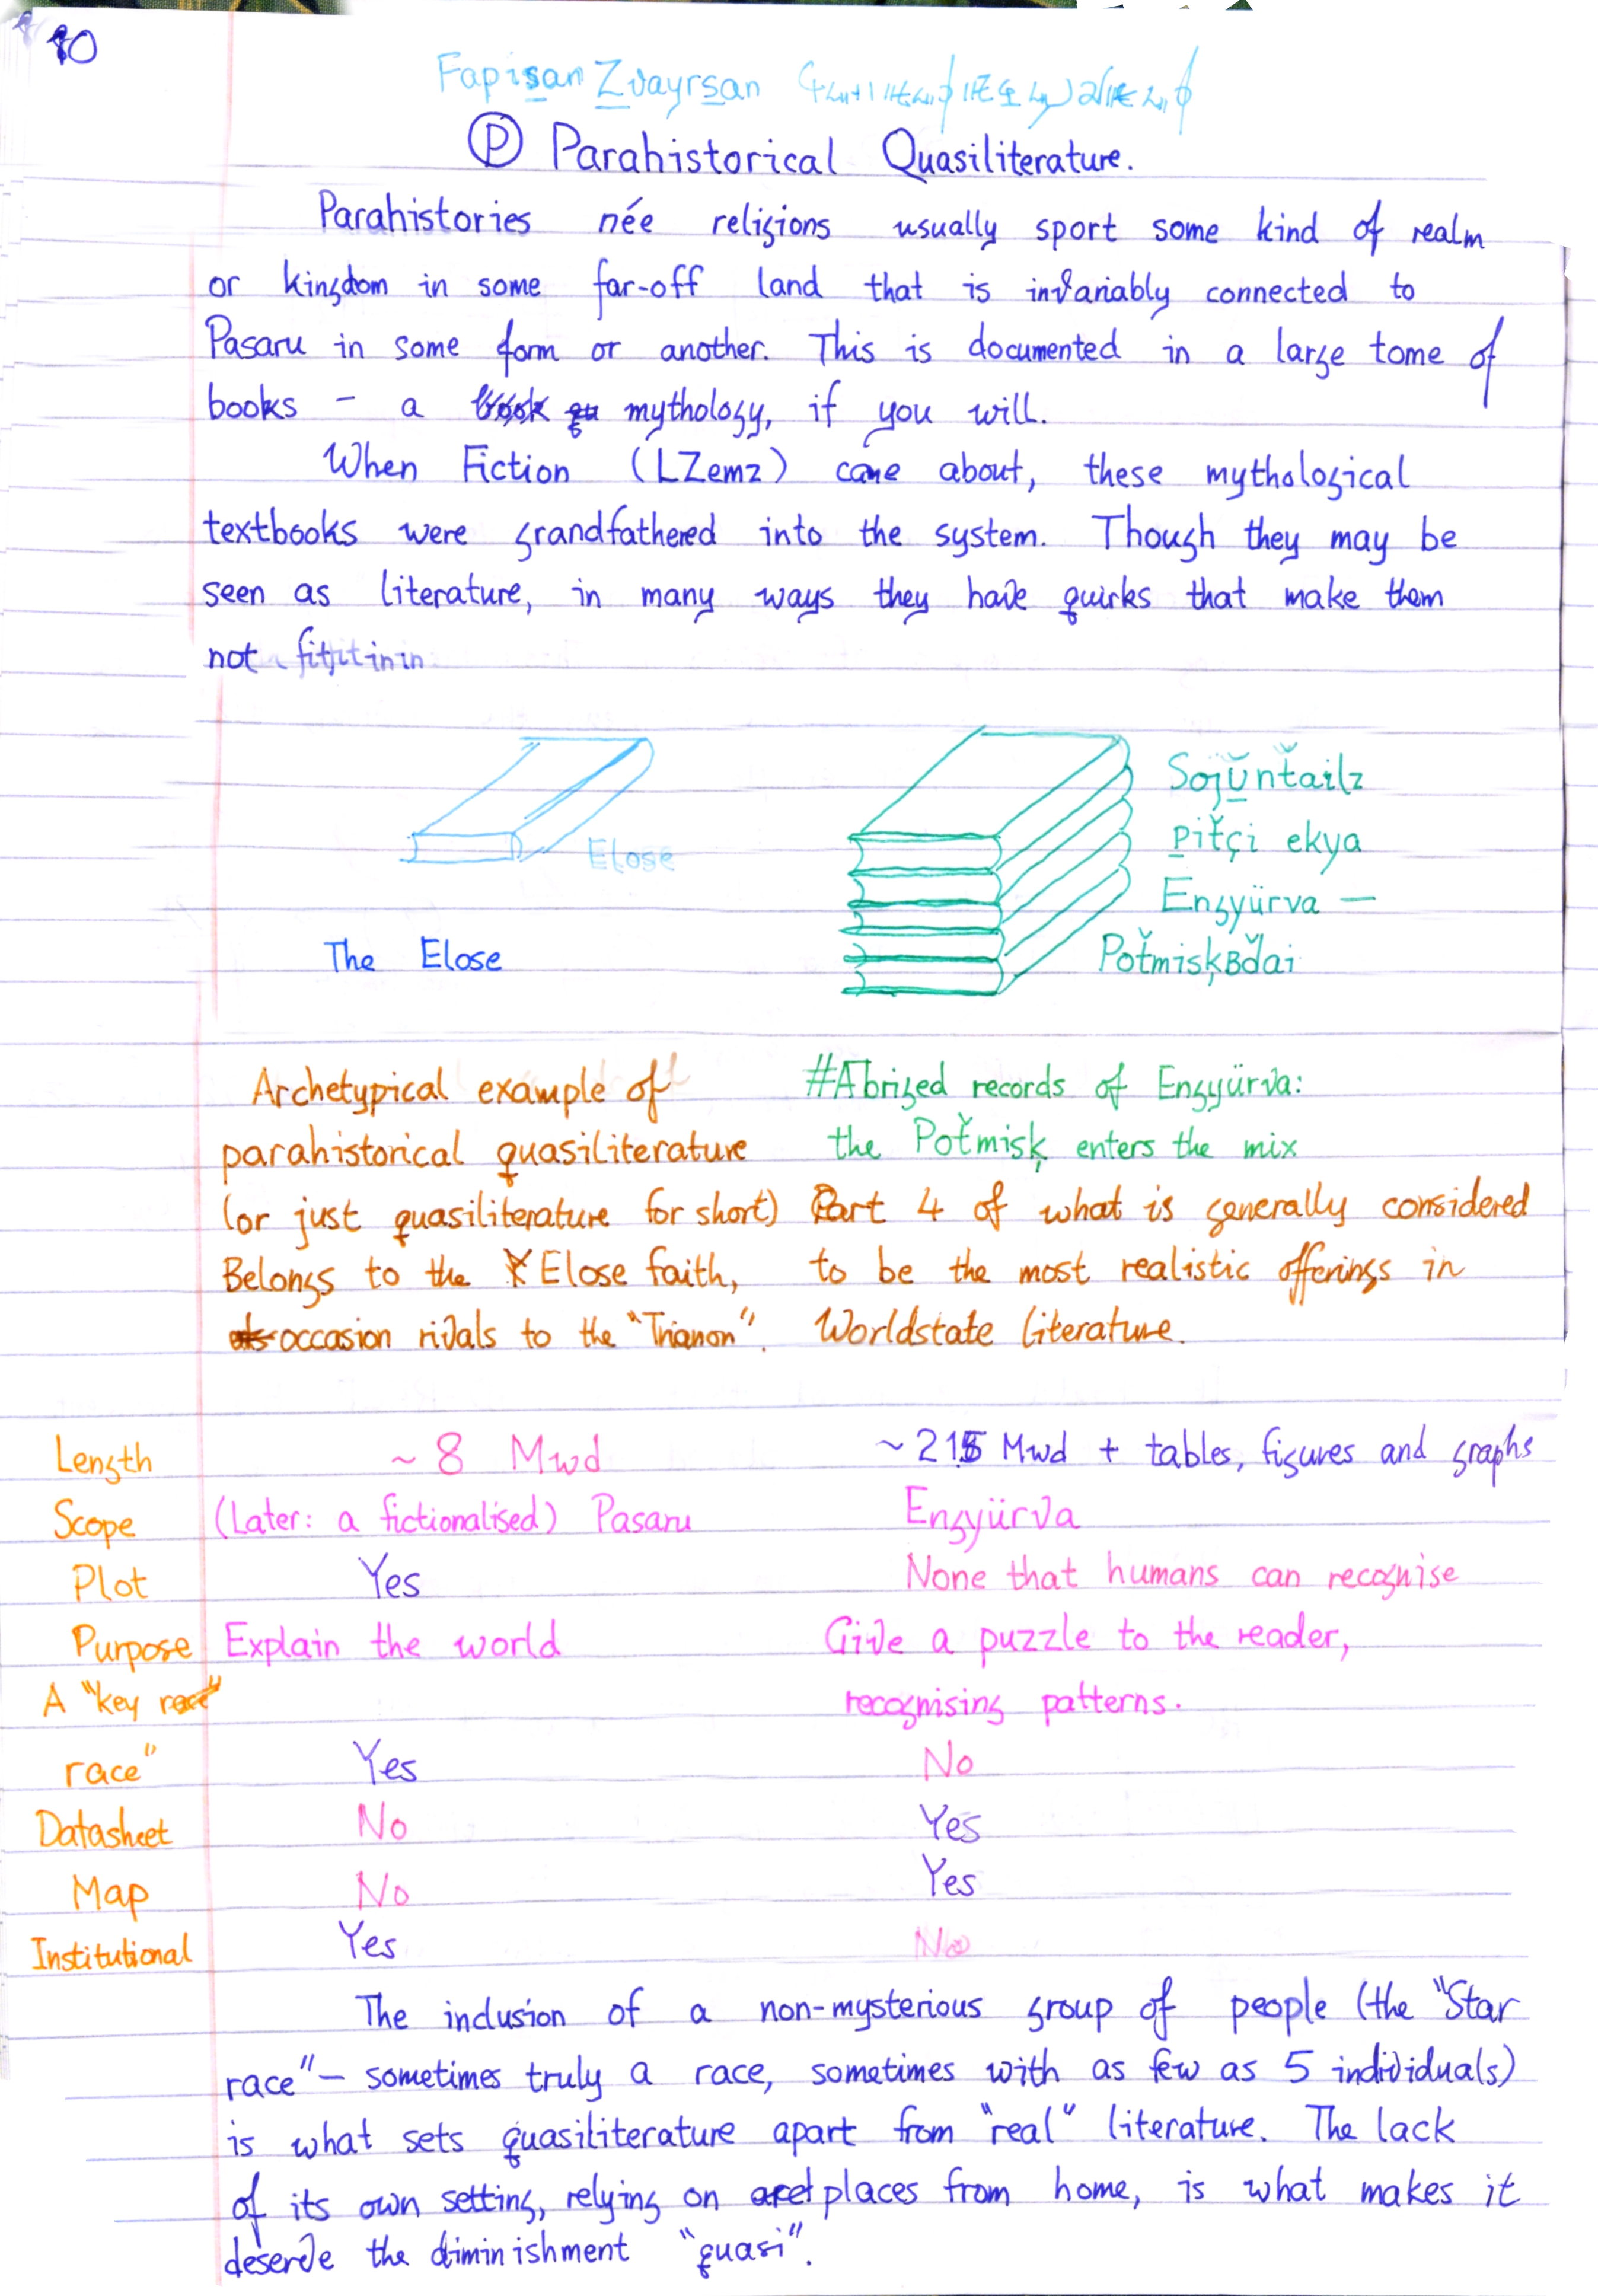 80
Fapisan Zvayrsan
Ⓟ Parahistorical Quasiliterature.
Parahistories née religions usually sport some kind of realm
or kingdom in some far-off land that is invariably connected to
Pasaru in some form or another. This is documented in a large tome of
books - a book qu mythology, if you will.
When Fiction (LZemz) came about, these mythological
textbooks were grandfathered into the system. Though they may be
seen as literature, in many ways they have quirks that make them
not fit in
Elose
The Elose
Sojŭntailz
pitçi ekya
Engyürva —
PotmiskBdai
Archetypical example of
parahistorical quasiliterature
(or just quasiliterature for short)
Belongs to the Elose faith,
occasion rivals to the "Trianon".
#Abriged records of Engyürva:
the Potmisk enters the mix
Part 4 of what is generally considered
to be the most realistic offerings in
Worldstate literature.
Length ~ 8 Mwd ~ 215 Mwd + tables, figures and graphs
Scope (Later: a fictionalised) Pasaru Engyürva
Plot Yes None that humans can recognise
Purpose Explain the world Give a puzzle to the reader,
recognising patterns.
A "key race
race" Yes No
Datasheet No Yes
Map No Yes
Institutional Yes No
The inclusion of a non-mysterious group of people (the "Star
race" — sometimes truly a race, sometimes with as few as 5 individuals)
is what sets quasiliterature apart from "real" literature. The lack
of its own setting, relying on places from home, is what makes it
deserve the diminishment "quasi".